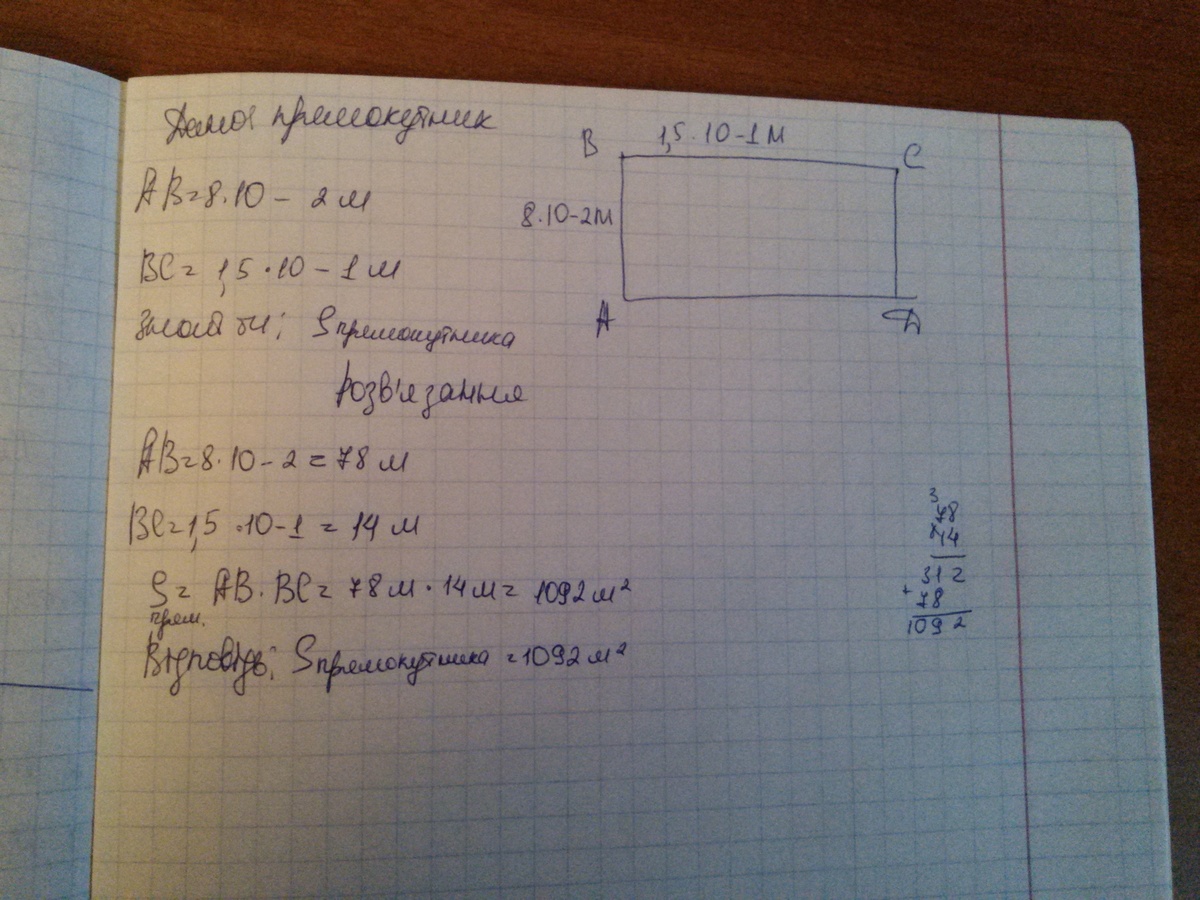 Дано: прямокутник
AB=8·10-2м
BC=1,5·10-1м
Знайти: Sпрямокутника
Розв'язання
AB=8·10-2=78м
BC=1,5·10-1=14м
Sпрям.=AB·BC=78м·14м=1092м²
Відповідь: Sпрямокутника=1092м²
B 1,5·10-1м C
8·10-2м
A D
3
78
×14
312
+78
1092